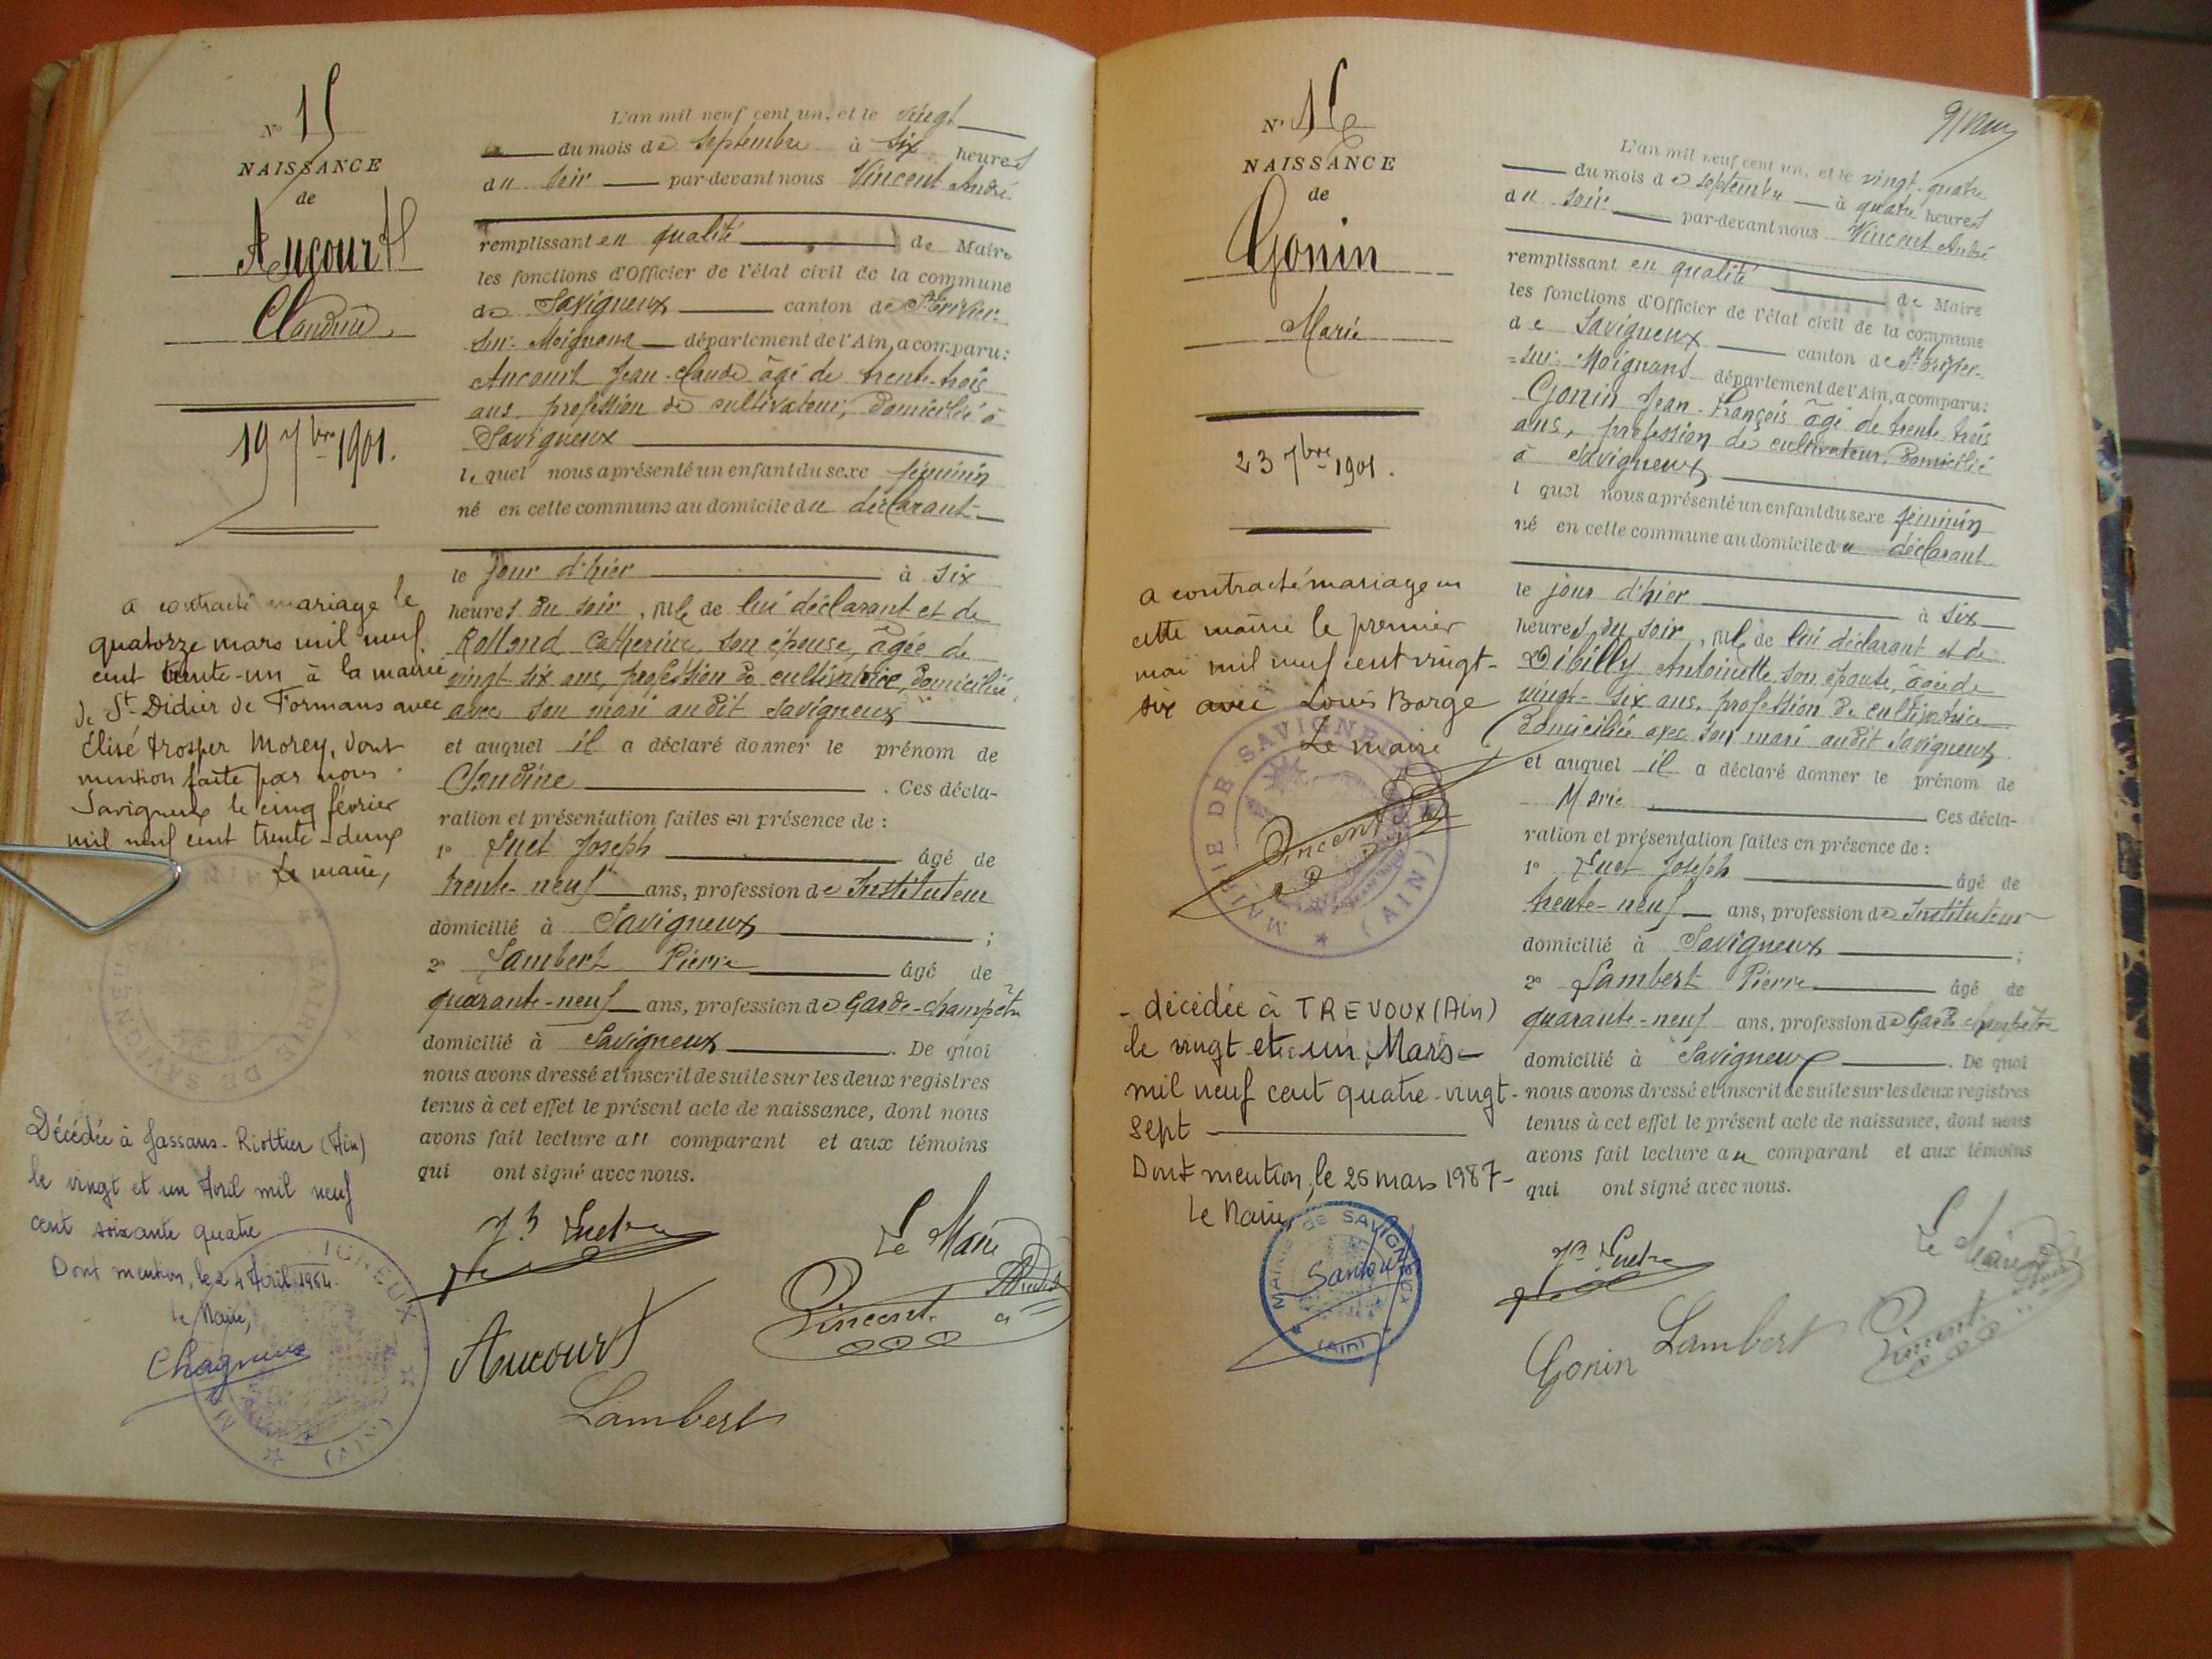 N° 15
NAISSANCE
de
Aucourt
Claudine
19 7bre 1901.
a contracté mariage le
quatorze mars mil neuf
cent trente-un à la mairie
de St Didier de Formans avec
Élisé Prosper Morey, dont
mention faite par nous
Savigneux le cinq février
mil neuf cent trente-deux
Le maire,
MAIRIE DE SAVIGN
Décédée à Jassans-Riottier (Ain)
le vingt et un Avril mil neuf
cent soixante quatre
Dont mention, le 24 Avril 1964.
le Maire,
Chagneux
IGNEUX (AIN)
L'an mil neuf cent un, et le vingt
du mois de septembre à six heures
du soir par-devant nous Vincent André
remplissant en qualité de Maire
les fonctions d'Officier de l'état civil de la commune
de Savigneux canton de St Trivier
sur-Moignans département de l'Ain, a comparu:
Aucourt Jean-Claude âgé de trente-trois
ans, profession de cultivateur, domicilié à
Savigneux
lequel nous a présenté un enfant du sexe féminin
né en cette commune au domicile du déclarant
le jour d'hier à six
heures du soir, né de lui déclarant et de
Rolland Catherine, son épouse, âgée de
vingt six ans, profession de cultivatrice, domiciliée
avec son mari audit Savigneux
et auquel il a déclaré donner le prénom de
Claudine . Ces décla-
ration et présentation faites en présence de :
1° Suet Joseph âgé de
trente-neuf ans, profession de Instituteur
domicilié à Savigneux ;
2° Lambert Pierre âgé de
quarante-neuf ans, profession de Garde-champêtre
domicilié à Savigneux . De quoi
nous avons dressé et inscrit de suite sur les deux registres
tenus à cet effet le présent acte de naissance, dont nous
avons fait lecture au comparant et aux témoins
qui ont signé avec nous.
Le Maire
Aucourt
Vincent André
Lambert
N° 16
NAISSANCE
de
Gonin
Marie
23 7bre 1901.
a contracté mariage en
cette mairie le premier
mai mil neuf cent vingt-
six avec Louis Barge
Le maire
Vincent
MAIRIE DE SAVIGNEUX (AIN)
- décédée à TREVOUX (Ain)
le vingt et un Mars
mil neuf cent quatre-vingt-
sept
Dont mention, le 26 mars 1987-
le Maire,
MAIRIE de SAVIGNEUX (Ain)
L'an mil neuf cent un, et le vingt-quatre
du mois de septembre à quatre heures
du soir par-devant nous Vincent André
remplissant en qualité de Maire
les fonctions d'Officier de l'état civil de la commune
de Savigneux canton de St Trivier-
-sur-Moignans département de l'Ain, a comparu:
Gonin Jean-François âgé de trente trois
ans, profession de cultivateur, domicilié
à Savigneux
l quel nous a présenté un enfant du sexe féminin
né en cette commune au domicile du déclarant
le jour d'hier à six
heures du soir, né de lui déclarant et de
Dibilly Antoinette, son épouse, âgée de
vingt-six ans, profession de cultivatrice
domiciliée avec son mari audit Savigneux
et auquel il a déclaré donner le prénom de
Marie Ces décla-
ration et présentation faites en présence de :
1° Suet Joseph âgé de
trente-neuf ans, profession de Instituteur
domicilié à Savigneux ;
2° Lambert Pierre âgé de
quarante-neuf ans, profession de Garde champêtre
domicilié à Savigneux . De quoi
nous avons dressé et inscrit de suite sur les deux registres
tenus à cet effet le présent acte de naissance, dont nous
avons fait lecture au comparant et aux témoins
qui ont signé avec nous.
Le Maire
Gonin
Lambert
Vincent